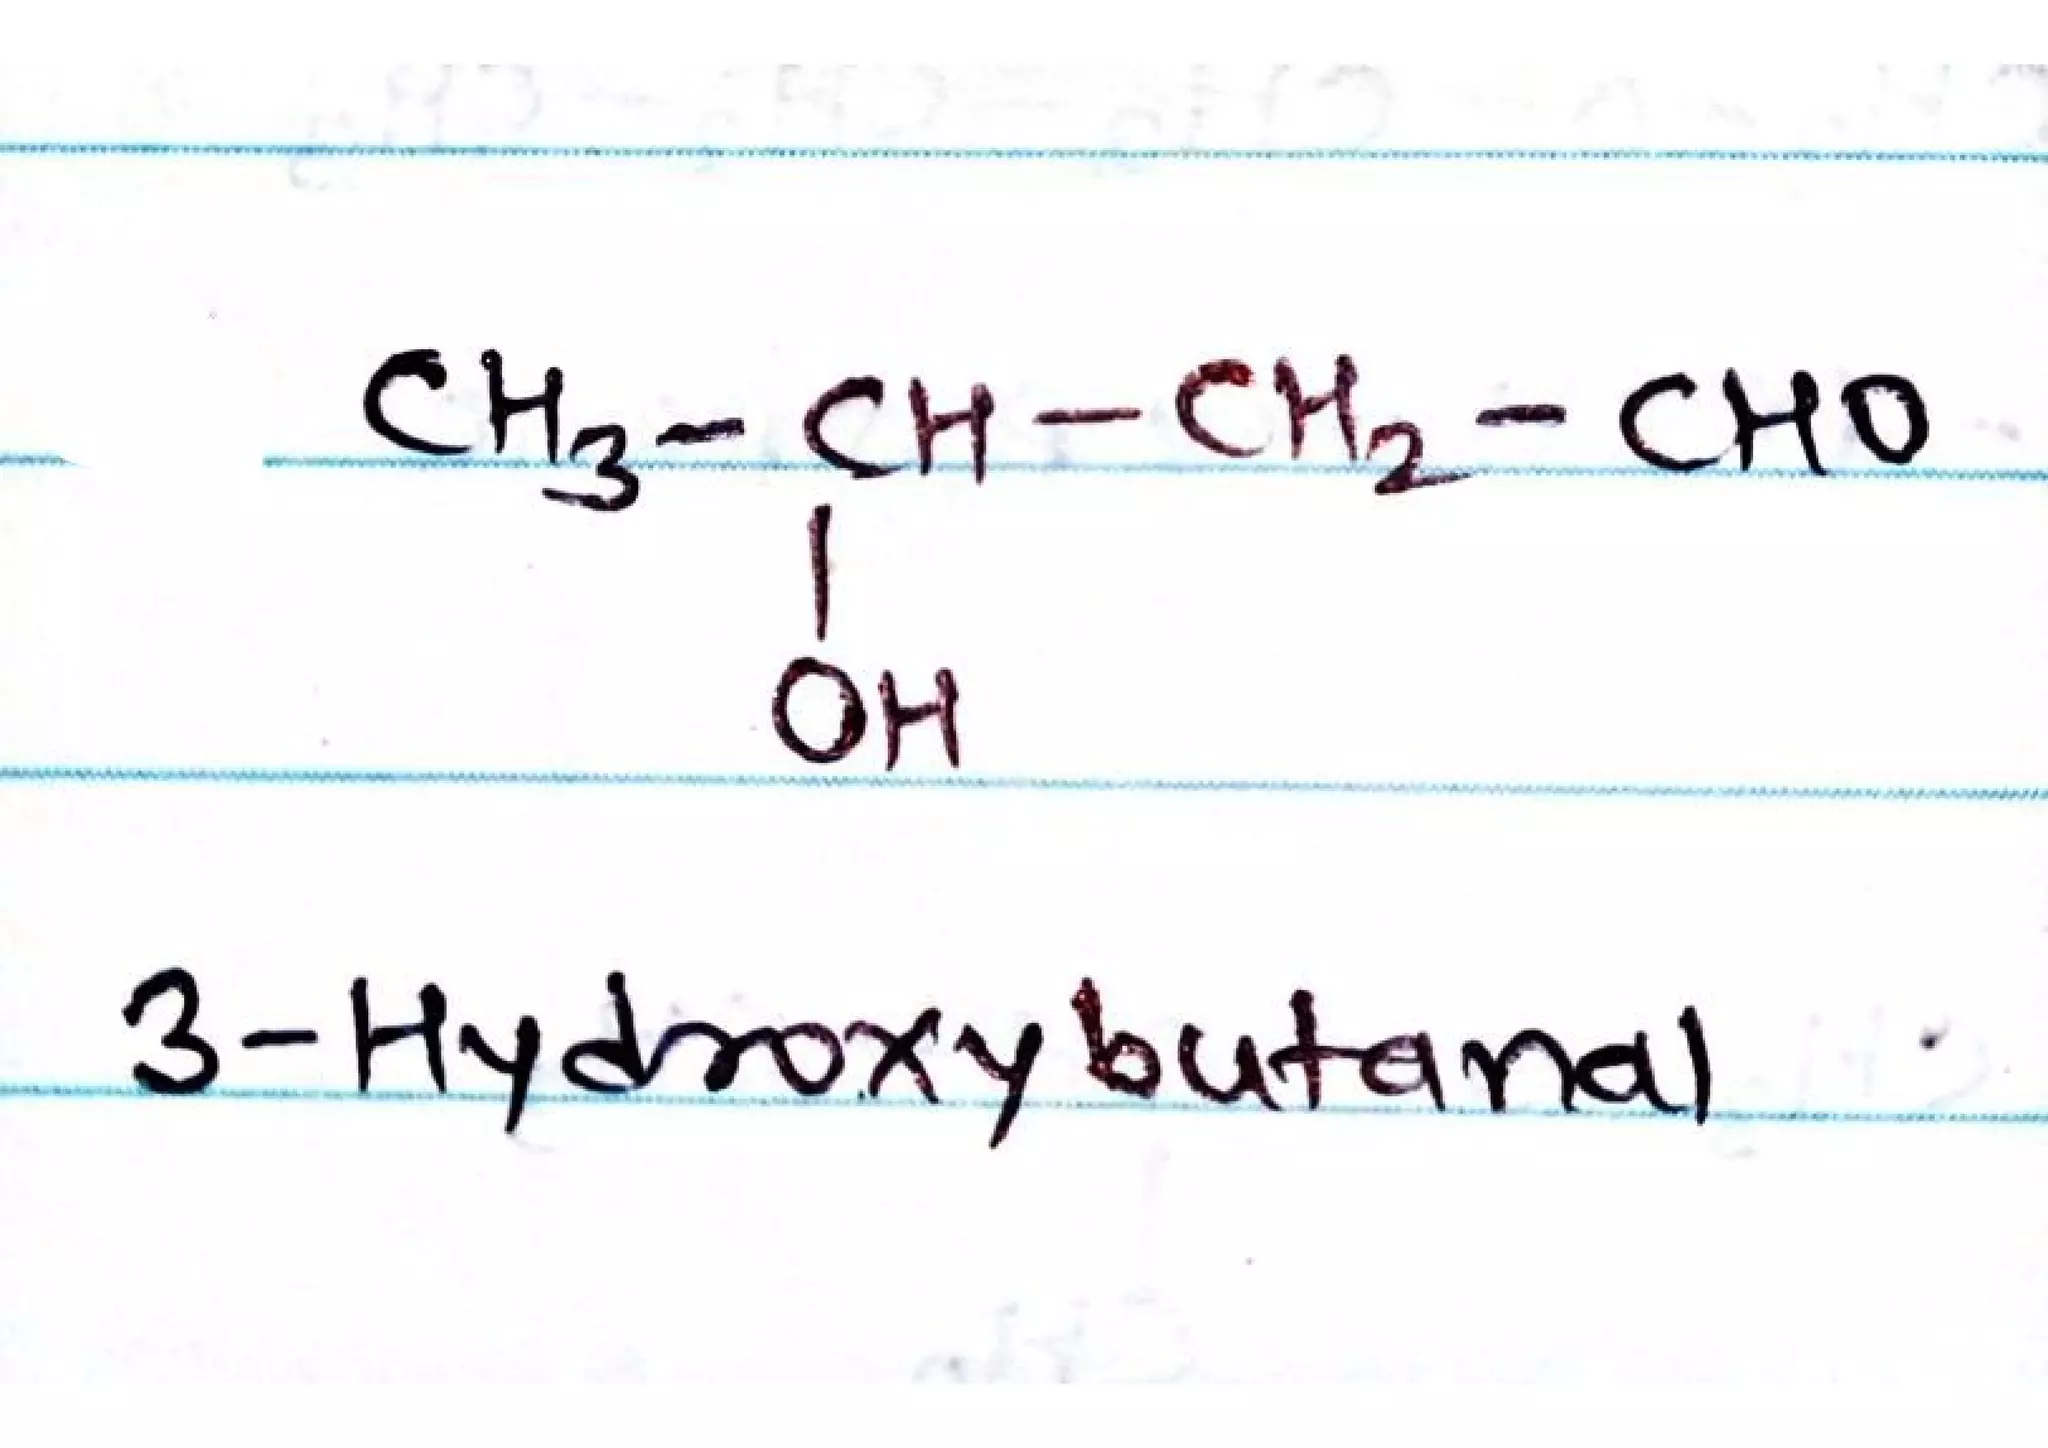 CH₃ - CH - CH₂ - CHO
|
OH
3-Hydroxybutanal